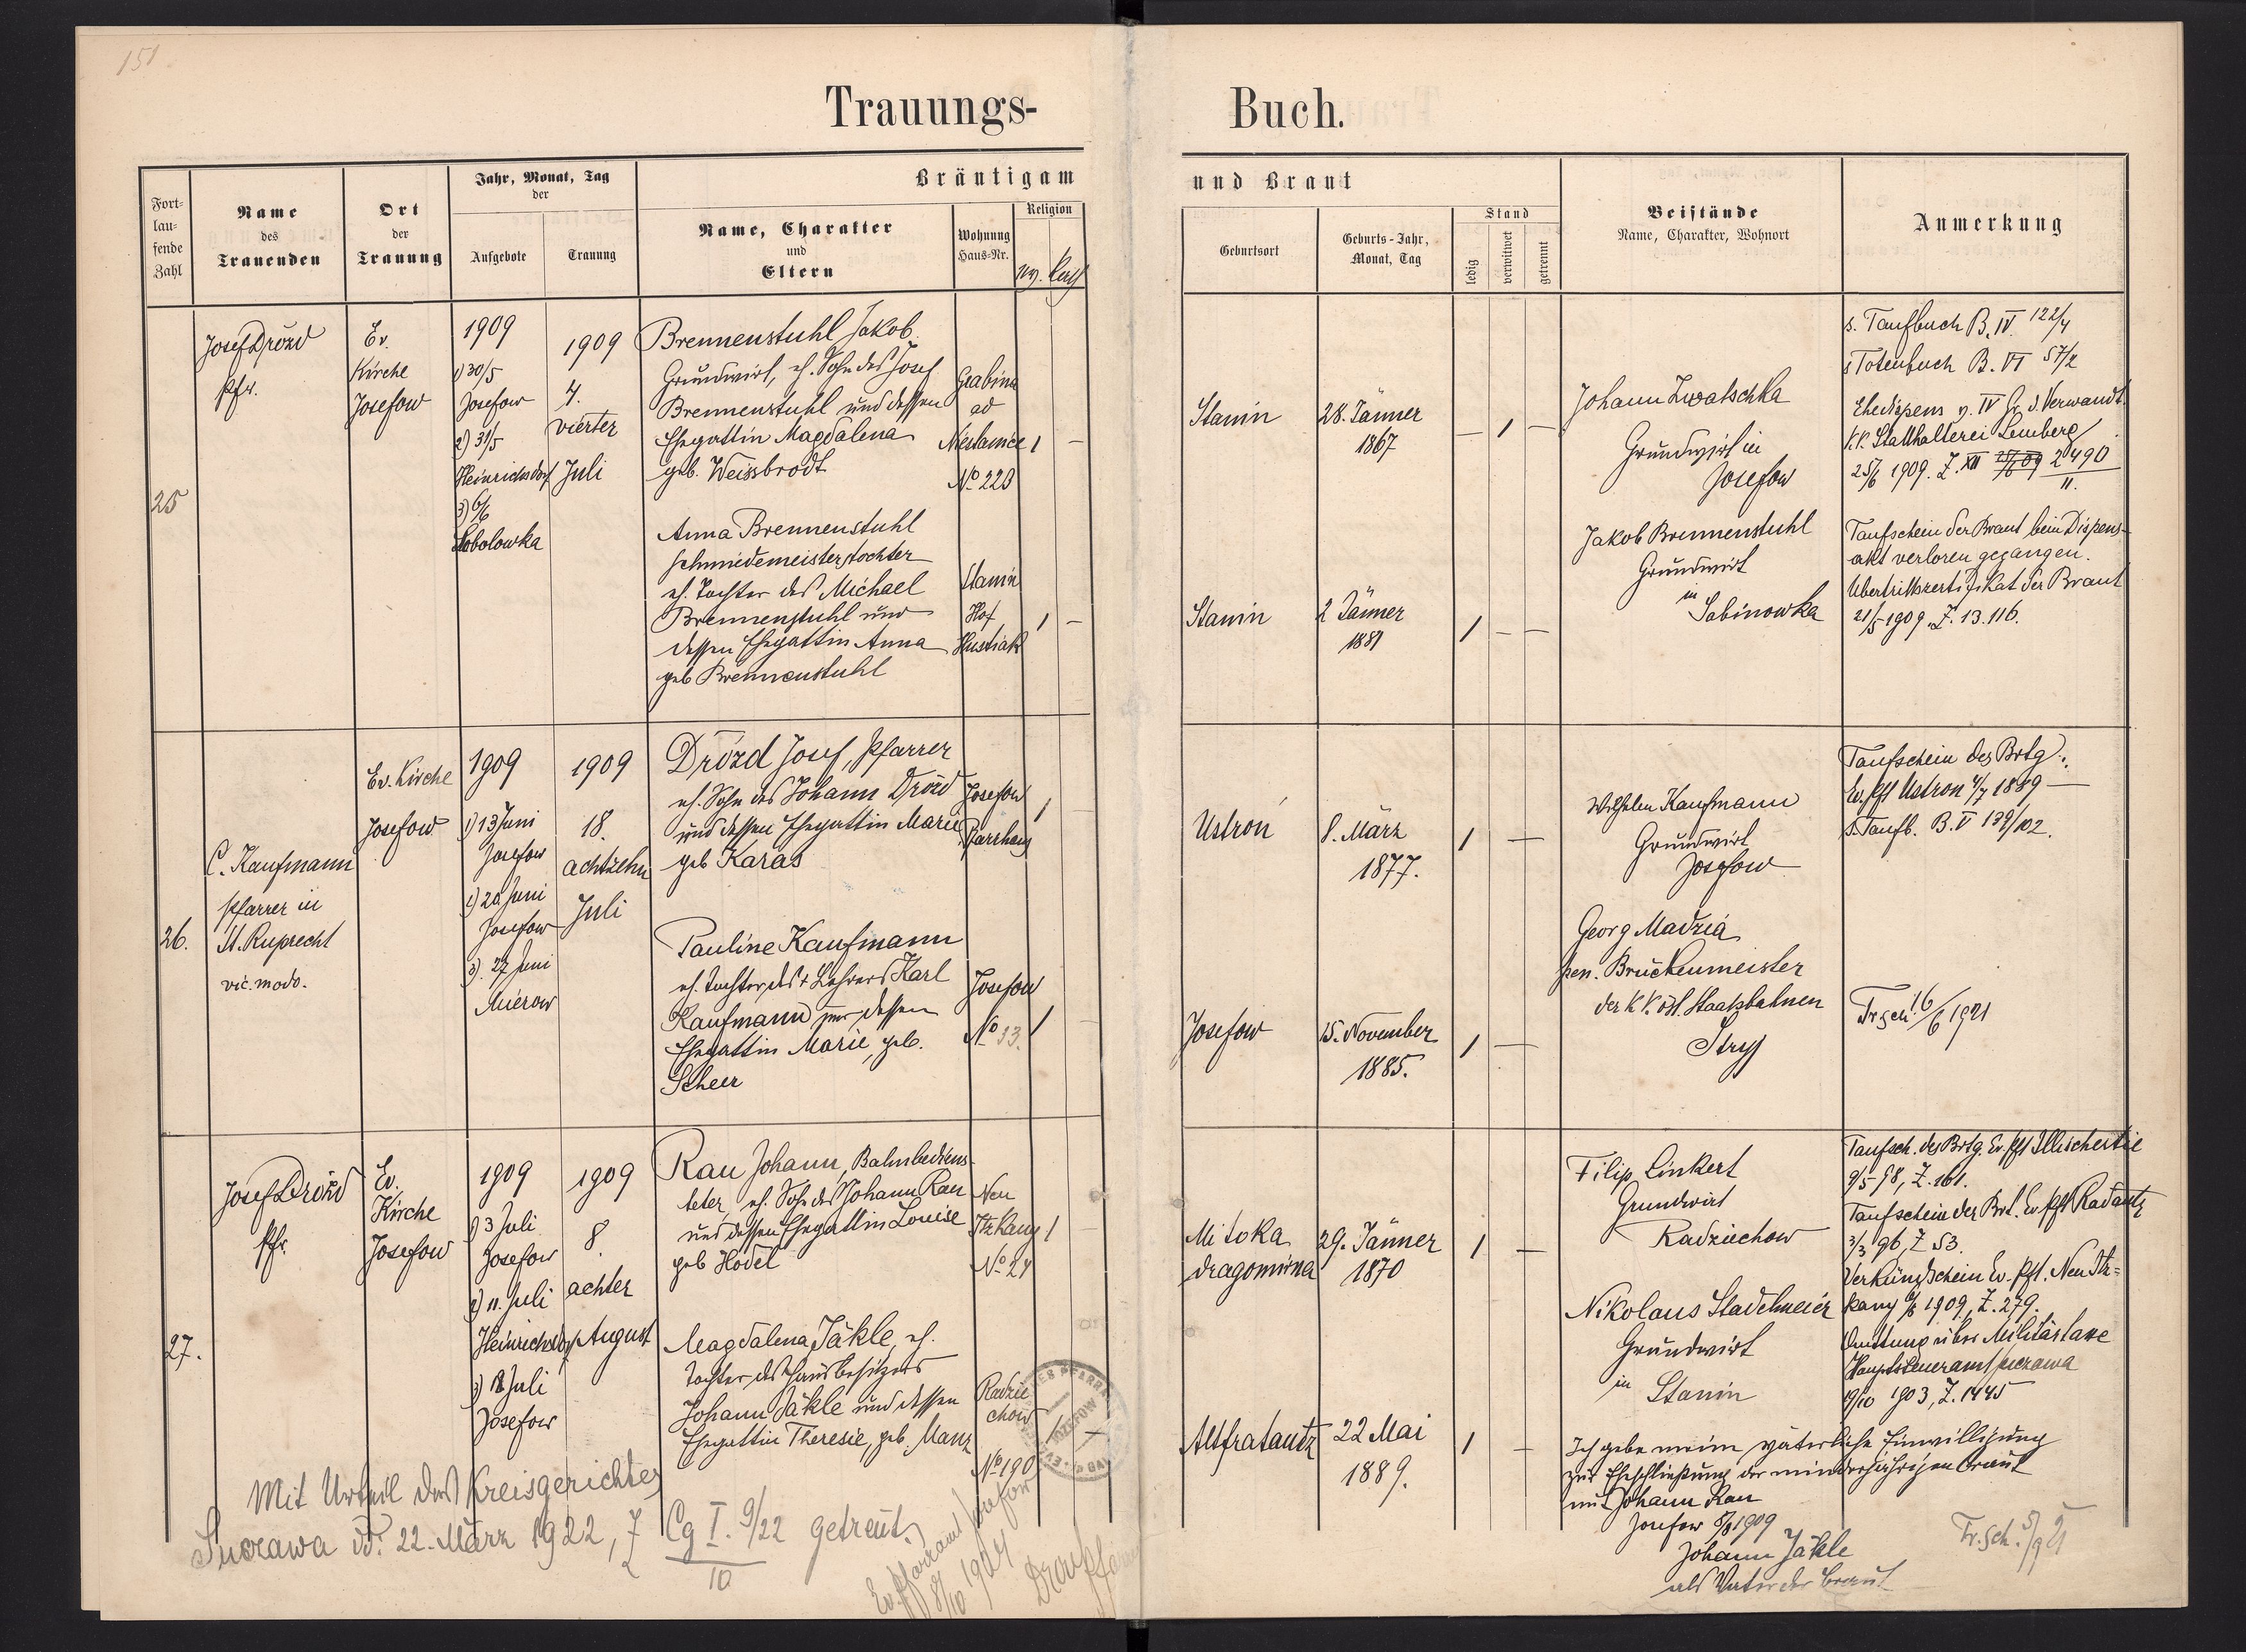 151
Trauungs-
Buch.
Fort-
lau-
fende
Zahl
Name
des
Trauenden
Ort
der
Trauung
Jahr, Monat, Tag
der
Aufgebote
Trauung
Bräutigam
Name, Charakter
und
Eltern
Wohnung
Haus-Nr.
Religion
und Braut
Geburtsort
Geburts-Jahr,
Monat, Tag
Stand
ledig
verwitwet
getrennt
Beistände
Name, Charakter, Wohnort
Anmerkung
25
Josef Drózd
Pfr.
Ev.
Kirche
Josefow
1909
1) 30/5
Josefow
2) 31/5
Heinrichsdorf
3) 6/6
Sobolowka
1909
4.
vierter
Juli
Brennenstuhl Jakob
Grundwirt, eh. Sohn des Josef
Brennenstuhl und dessen
Ehegattin Magdalena
geb. Weissbrodt
Grabina
ad
Niestanice
No 223
1 –
Anna Brennenstuhl
Schmiedemeisterstochter
eh. Tochter des Michael
Brennenstuhl und
dessen Ehegattin Anna
geb Brennenstuhl
Stanin
Hof
1 –
Stanin
28. Jänner
1867
– 1 –
Stanin
2 Jänner
1889
1 – –
Johann Zwatschka
Grundwirt in
Josefow
Jakob Brennenstuhl
Grundwirt
in
Sabinowka
s. Taufbuch B. IV. 122/4
s Totenbuch B. VI 57/2
Ehedispens v. IV Gr. d. Verwandt.
K.K. Statthalterei Lemberg
25/6 1909. Z. XII 2490
11.
Taufschein der Braut beim Dispens-
akt verloren gegangen.
Übertrittszertifikat der Braut
21/5 1909. Z. 13.116.
26.
C. Kaufmann
Pfarrer in
St. Ruprecht
vic. modo.
Ev. Kirche
Josefow
1909
1) 13 Juni
Josefow
2) 20 Juni
Josefow
3). 27 Juni
Mierow
1909
18.
achtzehn
Juli
Drózd Josef, Pfarrer
eh. Sohn des Johann Drózd
und dessen Ehegattin Marie
geb Karas
Josefow
Pfarrhaus
1
Pauline Kaufmann
eh. Tochter des + Lehrers Karl
Kaufmann und dessen
Ehegattin Marie, geb.
Scheer
Josefow
No 13.
1
Ustroń
8. März
1877.
1 –
Josefow
15. November
1885.
1 –
Wilhelm Kaufmann
Grundwirt
Josefow
Georg Madzia
pen. Brückenmeister
der K.K. öst. Staatsbahnen
Stryj
Taufschein des Brtg.:
Ev. Pft Ustron 4/7 1889 –
s. Taufb. B. V 139/102.
Tr. sch 16/6 1921
27.
Josef Drózd
Pfr.
Ev.
Kirche
Josefow
1909
1) 3 Juli
Josefow
2) 11. Juli
Heinrichsdorf
3) 18 Juli
Josefow
1909
8.
achter
August
Rau Johann, Bahnbediens-
teter, eh. Sohn des Johann Rau
und dessen Ehegattin Louise
geb Hodel
Neu
Itzkany
No 24
1
Magdalena Jäkle, eh.
Tochter des Hausbesitzers
Johann Jäkle und dessen
Ehegattin Theresie, geb. Manz
Radzie
chow
No 190
1 –
Mitoka
dragomirna
29. Jänner
1870
1 –
Altfratautz
22 Mai
1889.
1 –
Filip Linkert
Grundwirt
Radziechow
Nikolaus Stadelmeier
Grundwirt
in
Stanin
Taufsch. des Brtg. Ev. Pft Illischestie
9/5 98, Z. 161.
Taufschein der Brt. Ev. Pft Radautz
3/3 96, Z 53.
Verkündschein Ev. Pft. Neu Itz-
kany 6/8 1909, Z. 279.
Quittung über Militärtaxe
Hauptsteueramt Suczawa
19/10 1903, Z. 1445
Ich gebe meine väterliche Einwilligung
zur Eheschließung der minderjährigen Braut
mit Johann Rau
Josefow 8/8 1909
Johann Jäkle
als Vater der Braut
Tr. Sch. 5/9 21
Mit Urteil des Kreisgerichtes
Suczawa dd. 22. März 1922, Z Cg I. 9/22 getrennt.
10
Ev. Pfarramt Josefow
8/10